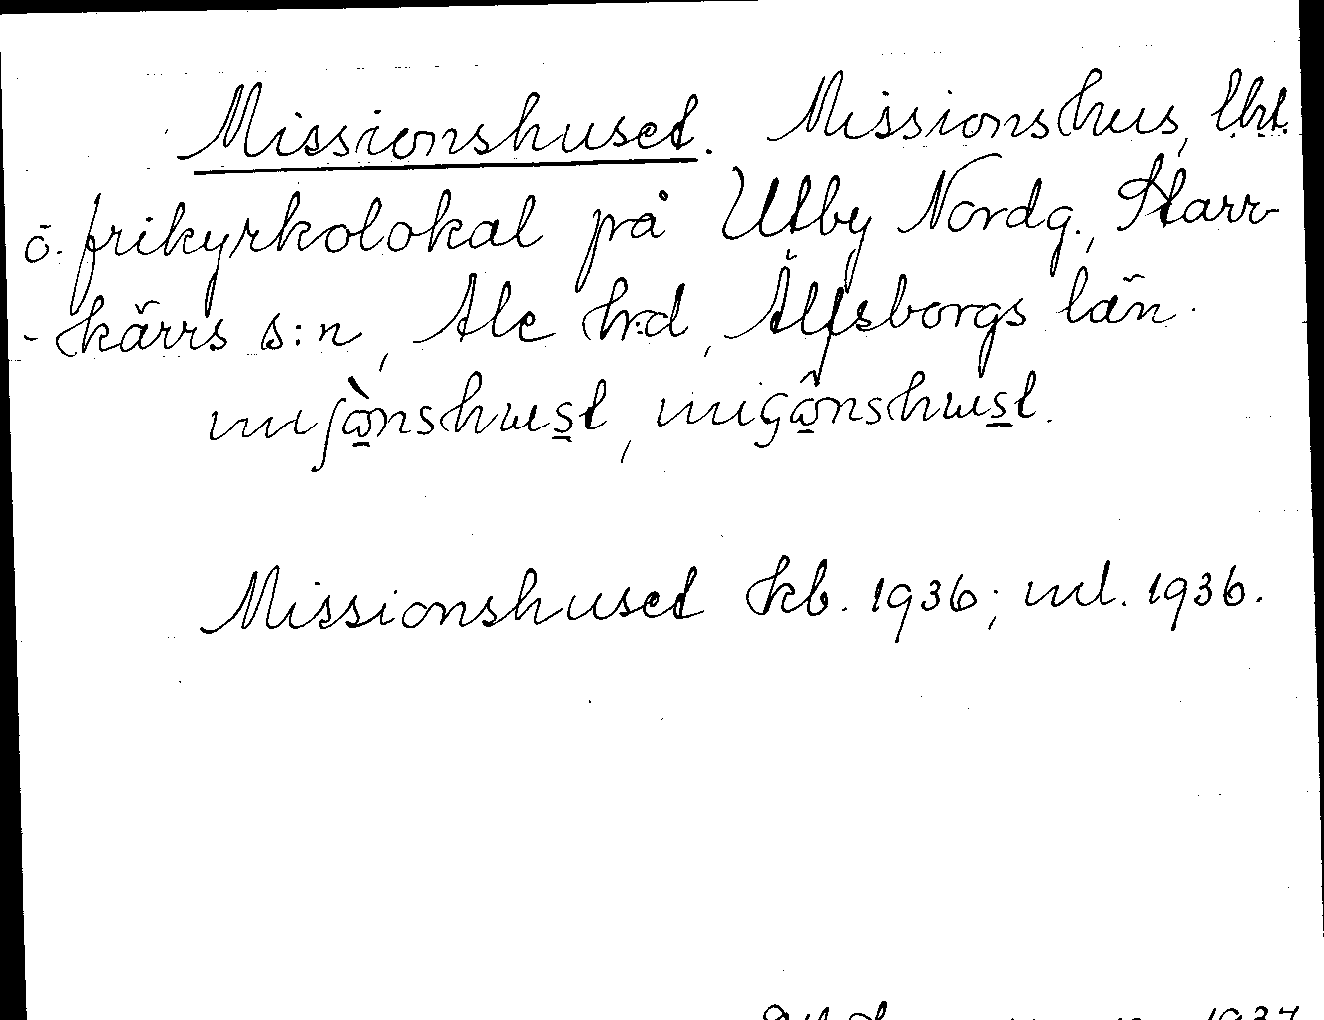 Missionshuset. Missionshus, lht.
o. frikyrkolokal på Utby Nordg., Starr-
- kärrs s:n, Ale hrd, Älfsborgs län.
miʃə̀nshust,
Missionshuset kb. 1936; ml. 1936.
1937